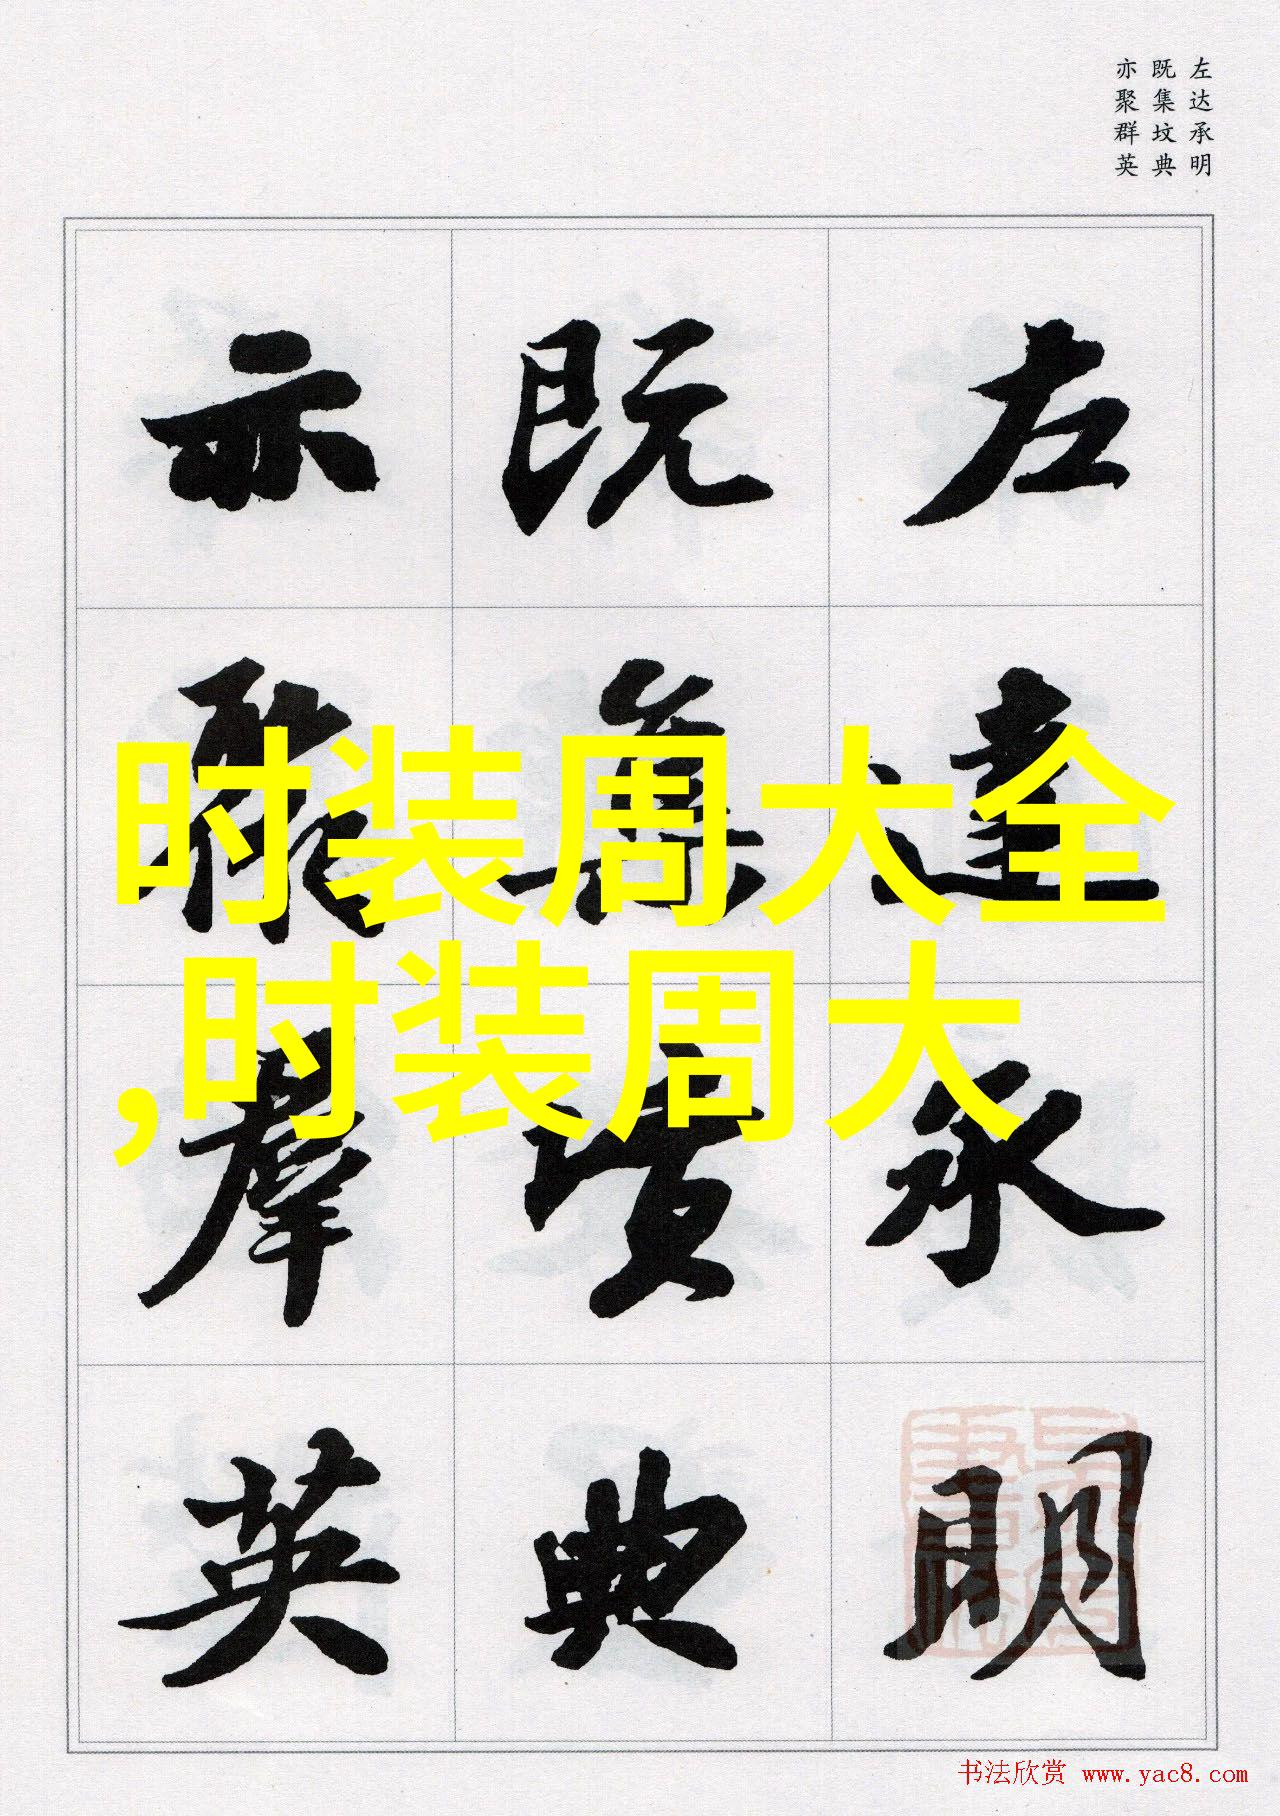 左达承明
既集坟典
亦聚群英
左達承明
既集墳典
亦聚羣英
时装周大全
,时装周大
书法欣赏 www.yac8.com